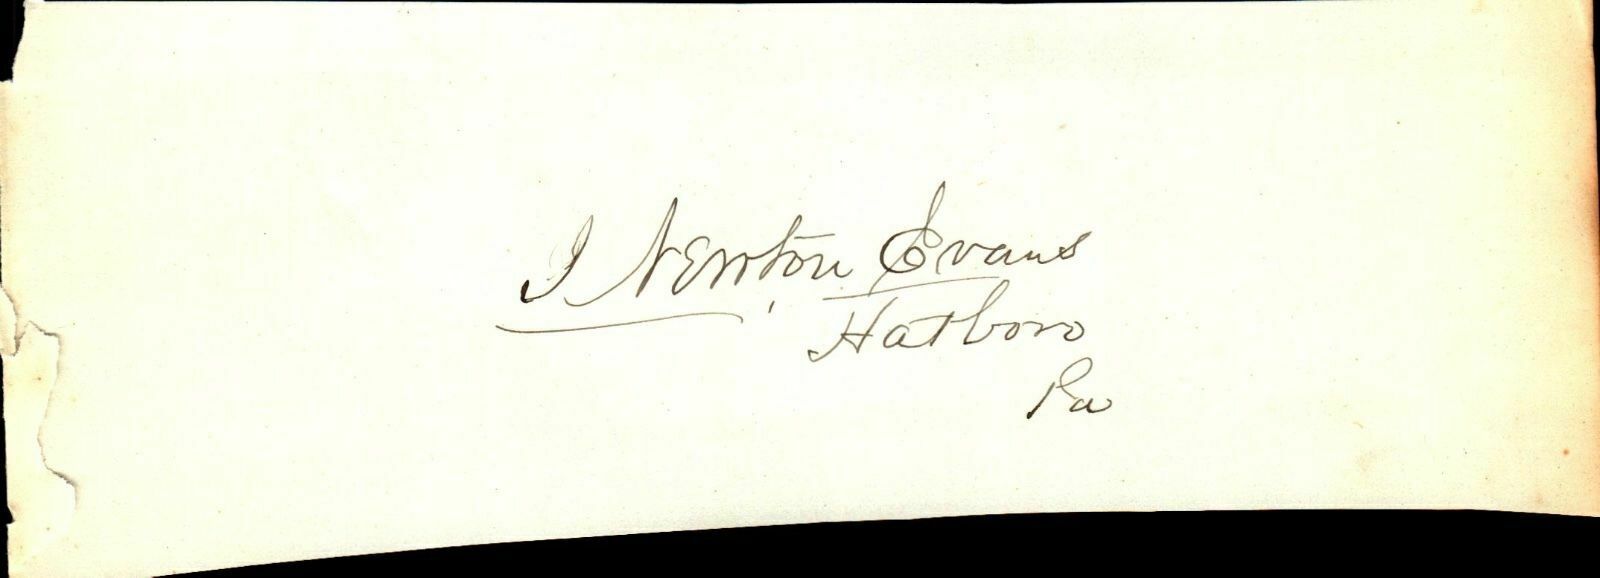 I Newton Evans
Hatboro
Pa